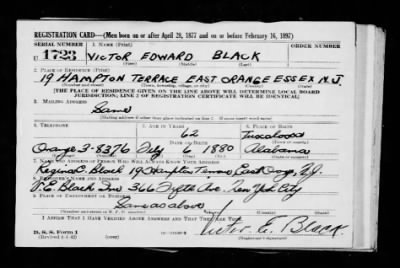 REGISTRATION CARD—(Men born on or after April 28, 1877 and on or before February 16, 1897)
SERIAL NUMBER 1. NAME (Print)
U 1723 VICTOR EDWARD BLACK
(First) (Middle) (Last)
2. PLACE OF RESIDENCE (Print)
19 HAMPTON TERRACE EAST ORANGE ESSEX N.J.
(Number and street) (Town, township, village, or city) (County) (State)
[THE PLACE OF RESIDENCE GIVEN ON THE LINE ABOVE WILL DETERMINE LOCAL BOARD
JURISDICTION; LINE 2 OF REGISTRATION CERTIFICATE WILL BE IDENTICAL]
3. MAILING ADDRESS
Same
4. TELEPHONE 5. AGE IN YEARS 6. PLACE OF BIRTH
62 Tuscaloosa
DATE OF BIRTH
Orange 3-8376 6 1880 Alabama
7. NAME AND ADDRESS OF PERSON WHO WILL ALWAYS KNOW YOUR ADDRESS
Black 19 Hampton Terrace East N.J.
8. EMPLOYER'S NAME AND ADDRESS
V.E. Black Inc 366 Fifth Ave. New York City
9. PLACE OF EMPLOYMENT OR BUSINESS
Same as above
I AFFIRM THAT I HAVE VERIFIED ABOVE ANSWERS AND THAT THEY ARE TRUE.
D. S. S. Form 1
Victor E. Black